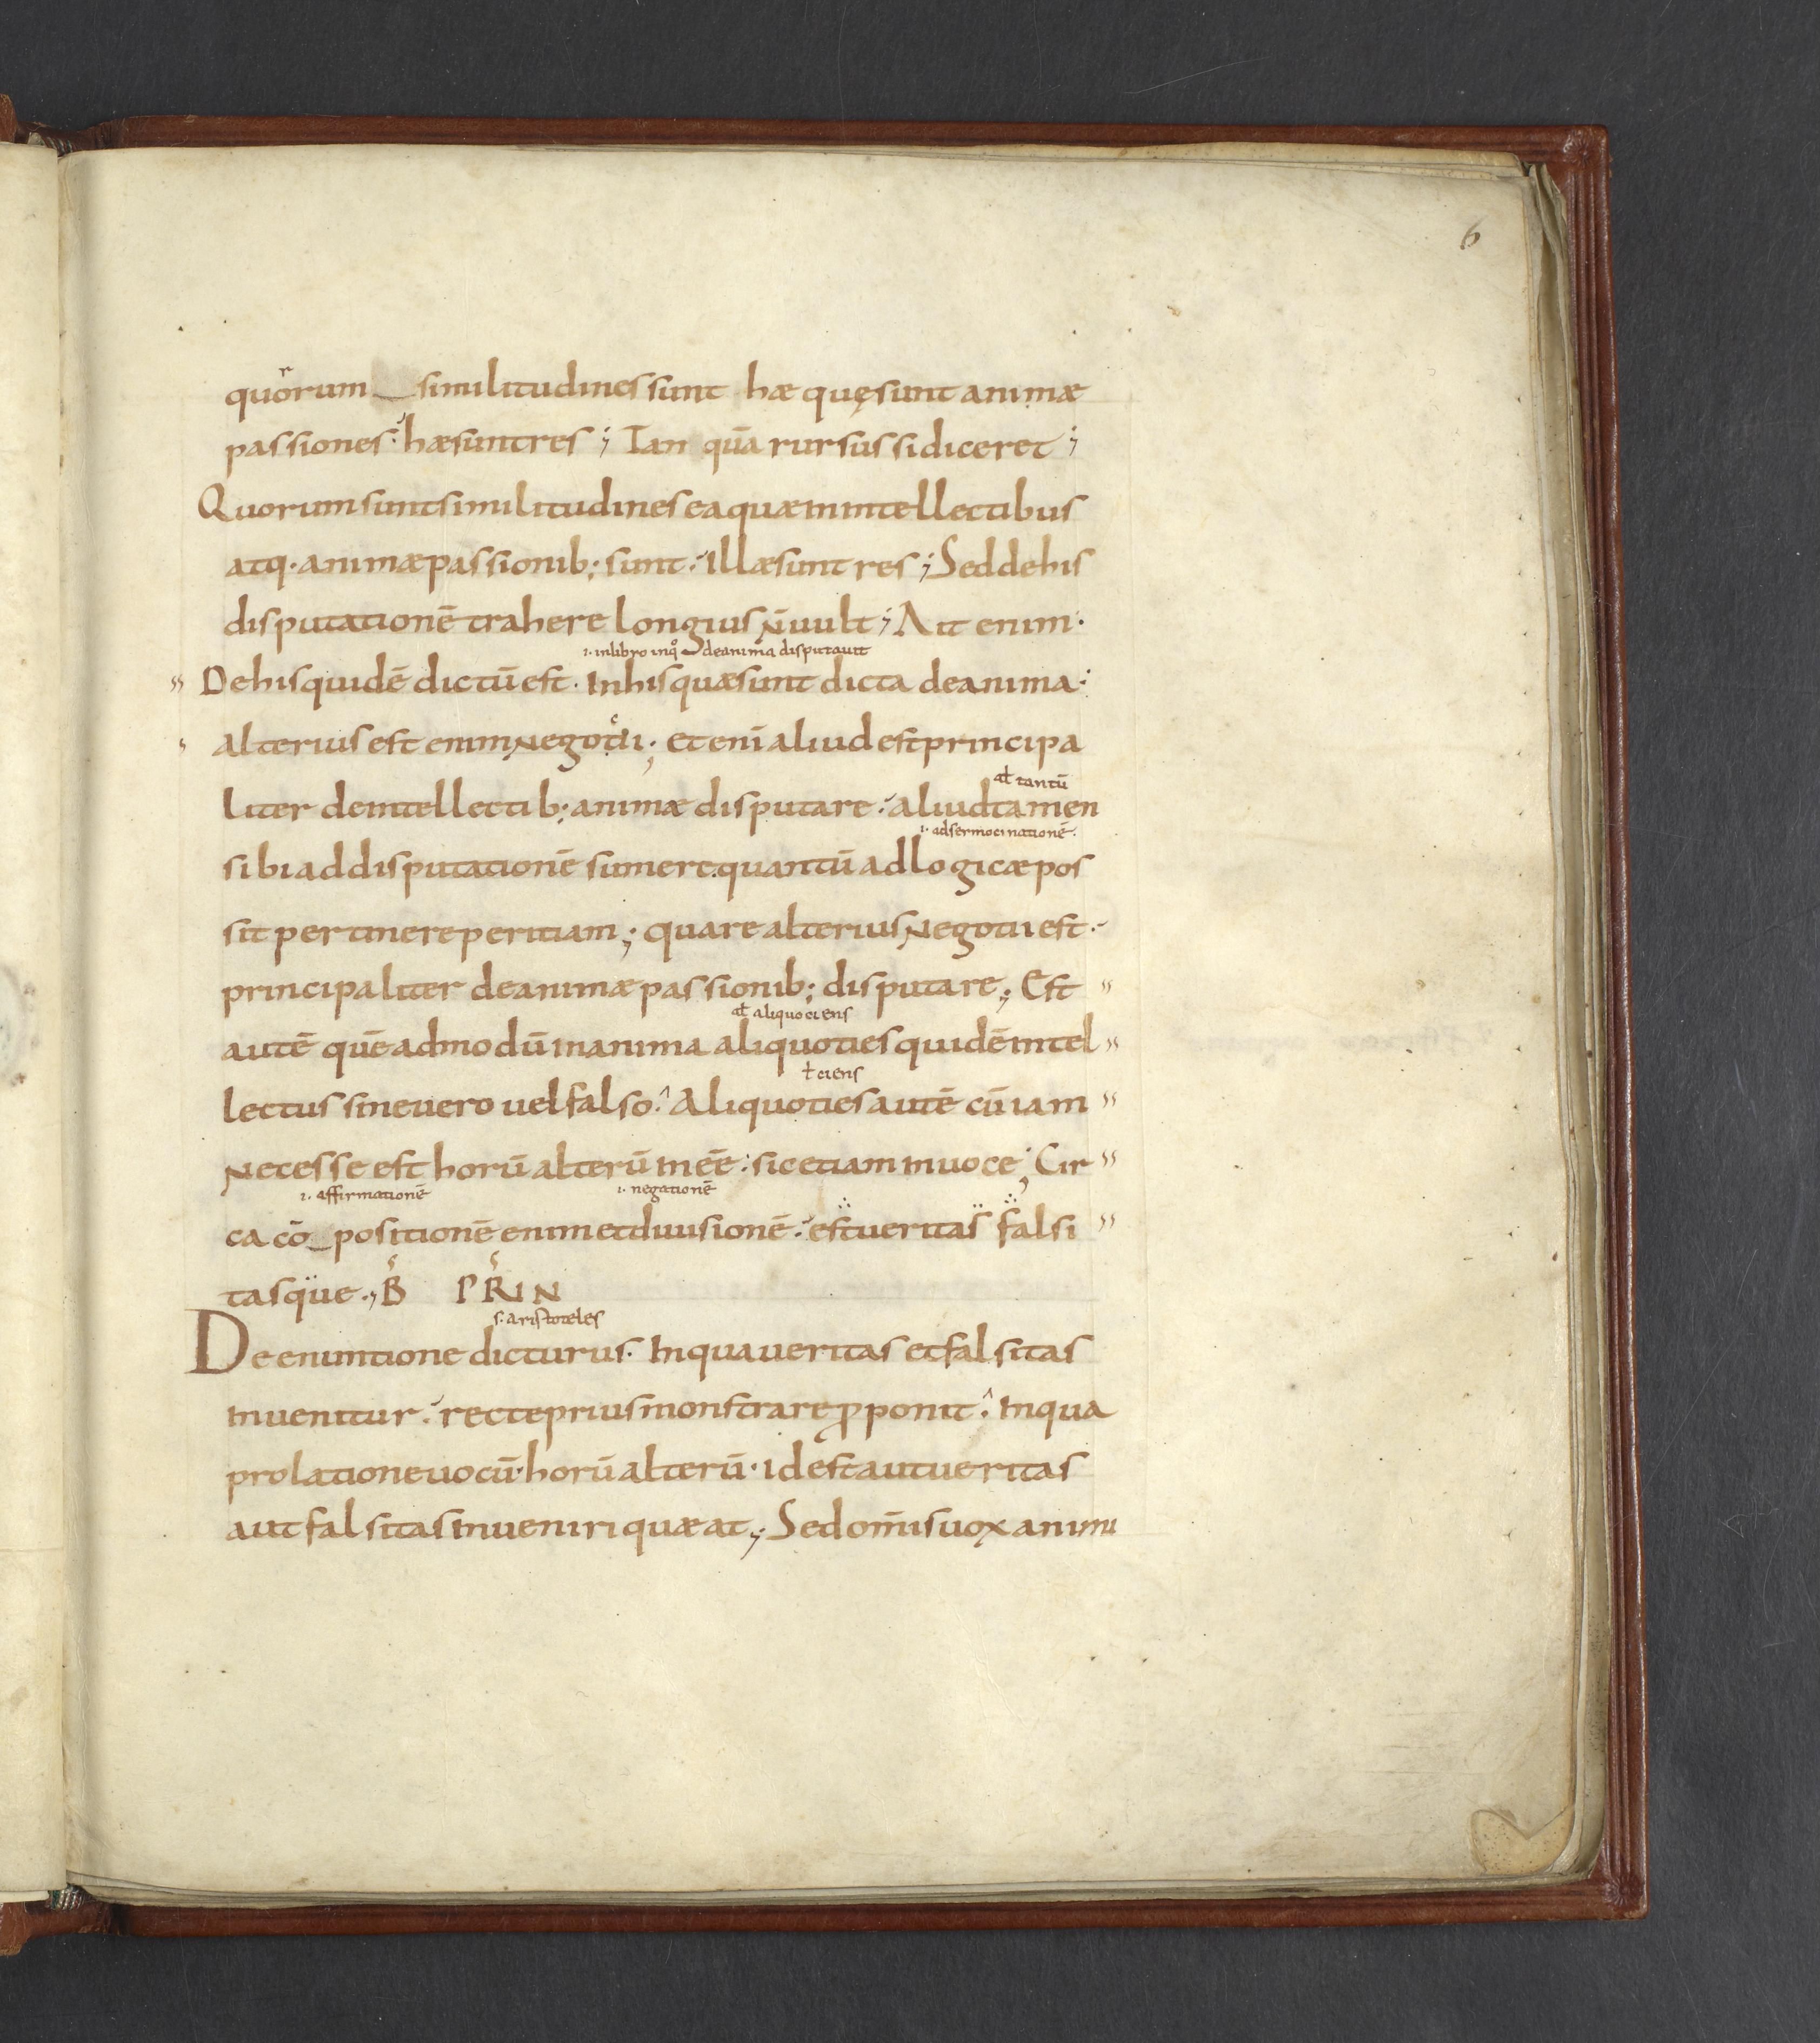 6
quorum similitudines sunt hæ quę sunt animæ
passiones hæ sunt res; Tan quā rursus si diceret;
Quorum sunt similitudines ea quæ in intellectibus
atq· animæ passionib; sunt· illæ sunt res; Sed de his
disputationē trahere longius n̄ uult; Ait enim·
i· in libro inq̊ de anima disputauit
De his quidē dictū est· In his quæ sunt dicta de anima·
alterius est enim negotii; et enī aliud est principa
at tantū
liter de intellectib; animæ disputare· aliud tamen
i· ad sermocinationē·
sibi ad disputationē sumere quantū ad logicæ pos
sit pertinere peritiam; quare alterius negotii est·
principaliter de animæ passionib; disputare; Est
at aliquociens
autē quēadmodū in anima aliquoties quidē intel
ł ciens
lectus sine uero uel falso· Aliquoties autē cū iam
necesse est horū alterū in eē· sic etiam in uoce; Cir
i· affirmationē i· negationē
ca cō positionē enim et diuisionē· est ueritas falsi
tasque; B PRIN
s· aristoteles
De enuntione dicturus· In qua ueritas et falsitas
inuenitur· recte prius monstrare ꝓponit· In qua
prolatione uocū· horū alterū· id est aut ueritas
aut falsitas inueniri quæat; Sed om̄is uox animi